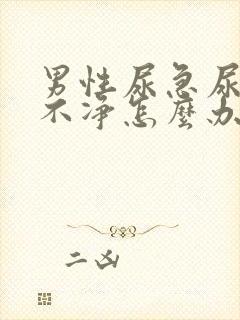 男性尿急尿
不净怎麽办
二凶